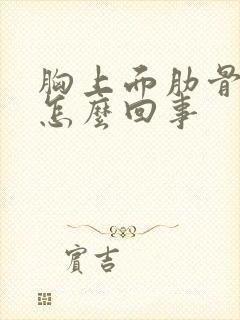 胸上面肋骨
怎麼回事
賓吉